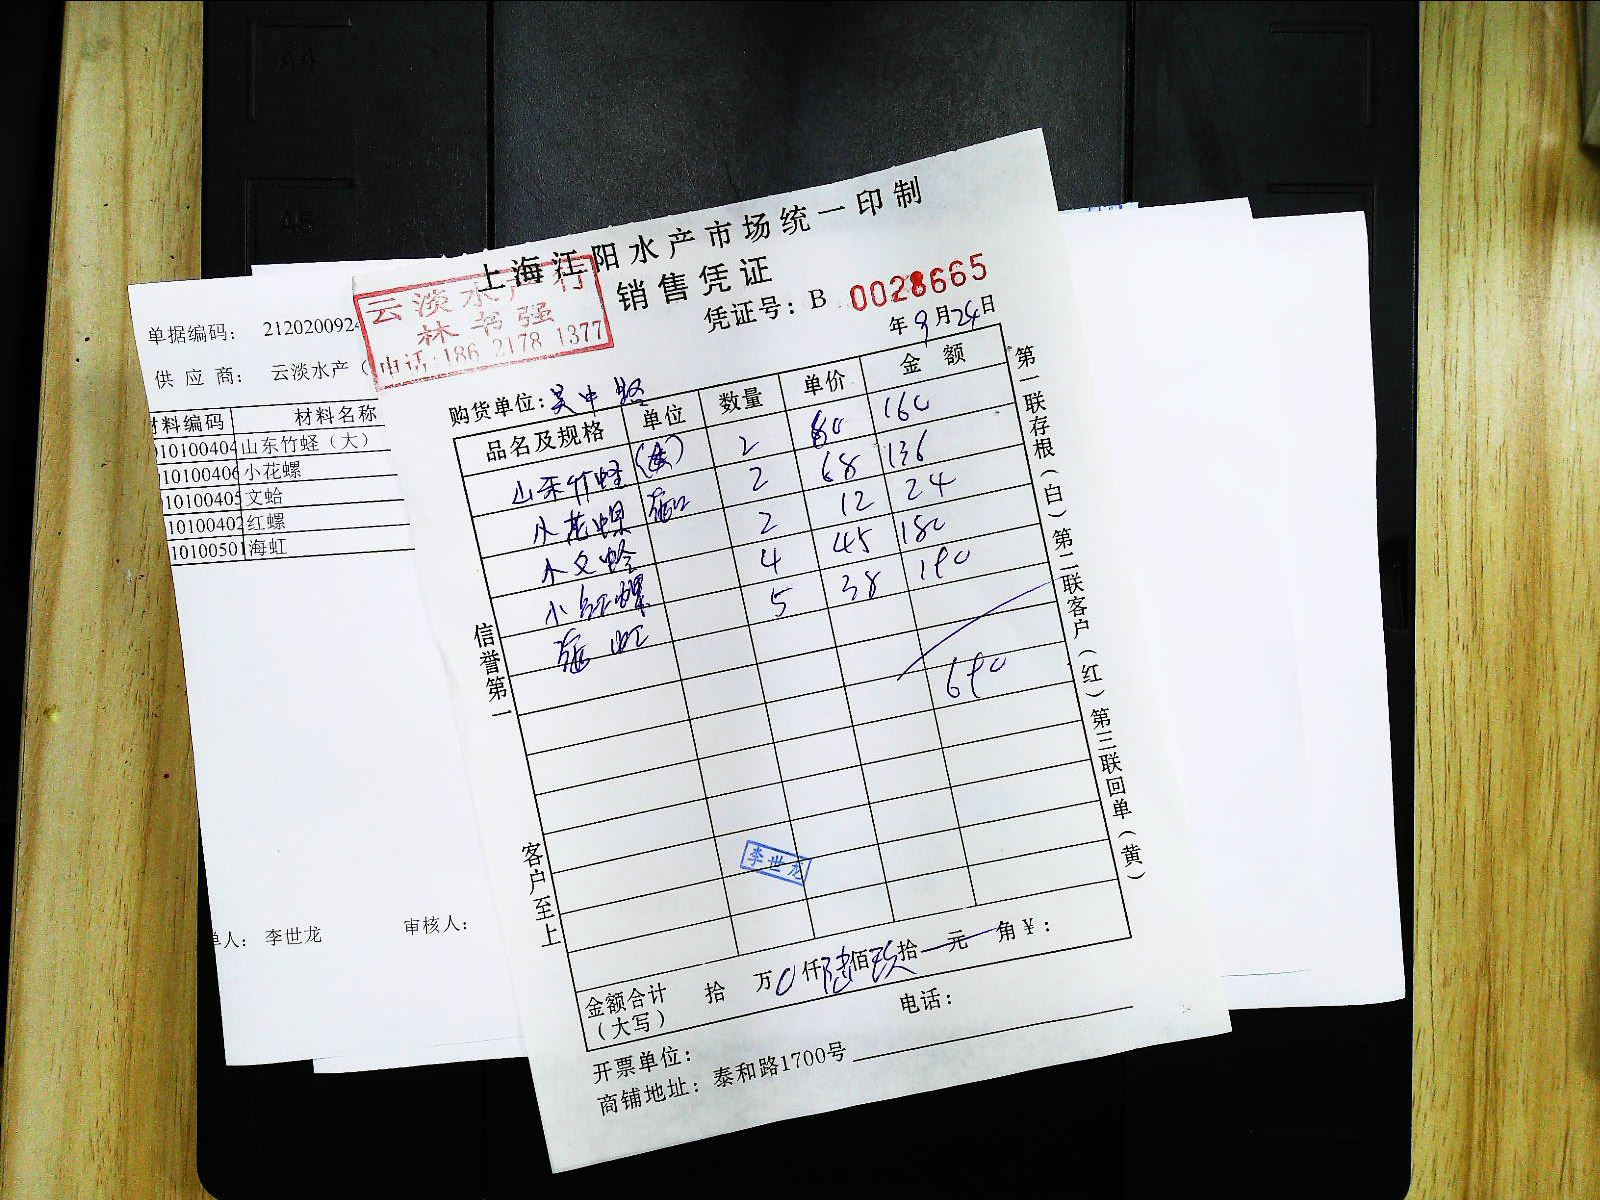 上海江阳水产市场统一印制
销售凭证
凭证号：B 0028665
年9月24日
云淡水产行
林书强
电话 186 2178 1377
购货单位：吴中路
品名及规格 单位 数量 单价 金额
山东竹蛏（大） 2 80 160
小花螺 2 68 136
小文蛤 2 12 24
小红螺 4 45 180
海虹 5 38 190
690
李世龙
金额合计（大写） 拾 万0仟陆佰玖拾 元 角¥：
开票单位： 电话：
商铺地址：泰和路1700号
信誉第一
客户至上
第一联存根（白）第二联客户（红）第三联回单（黄）
单据编码： 212020092
供应商： 云淡水产（
材料编码 材料名称
10100404 山东竹蛏（大）
10100406 小花螺
10100405 文蛤
10100402 红螺
10100501 海虹
单人： 李世龙 审核人：
A4
A5